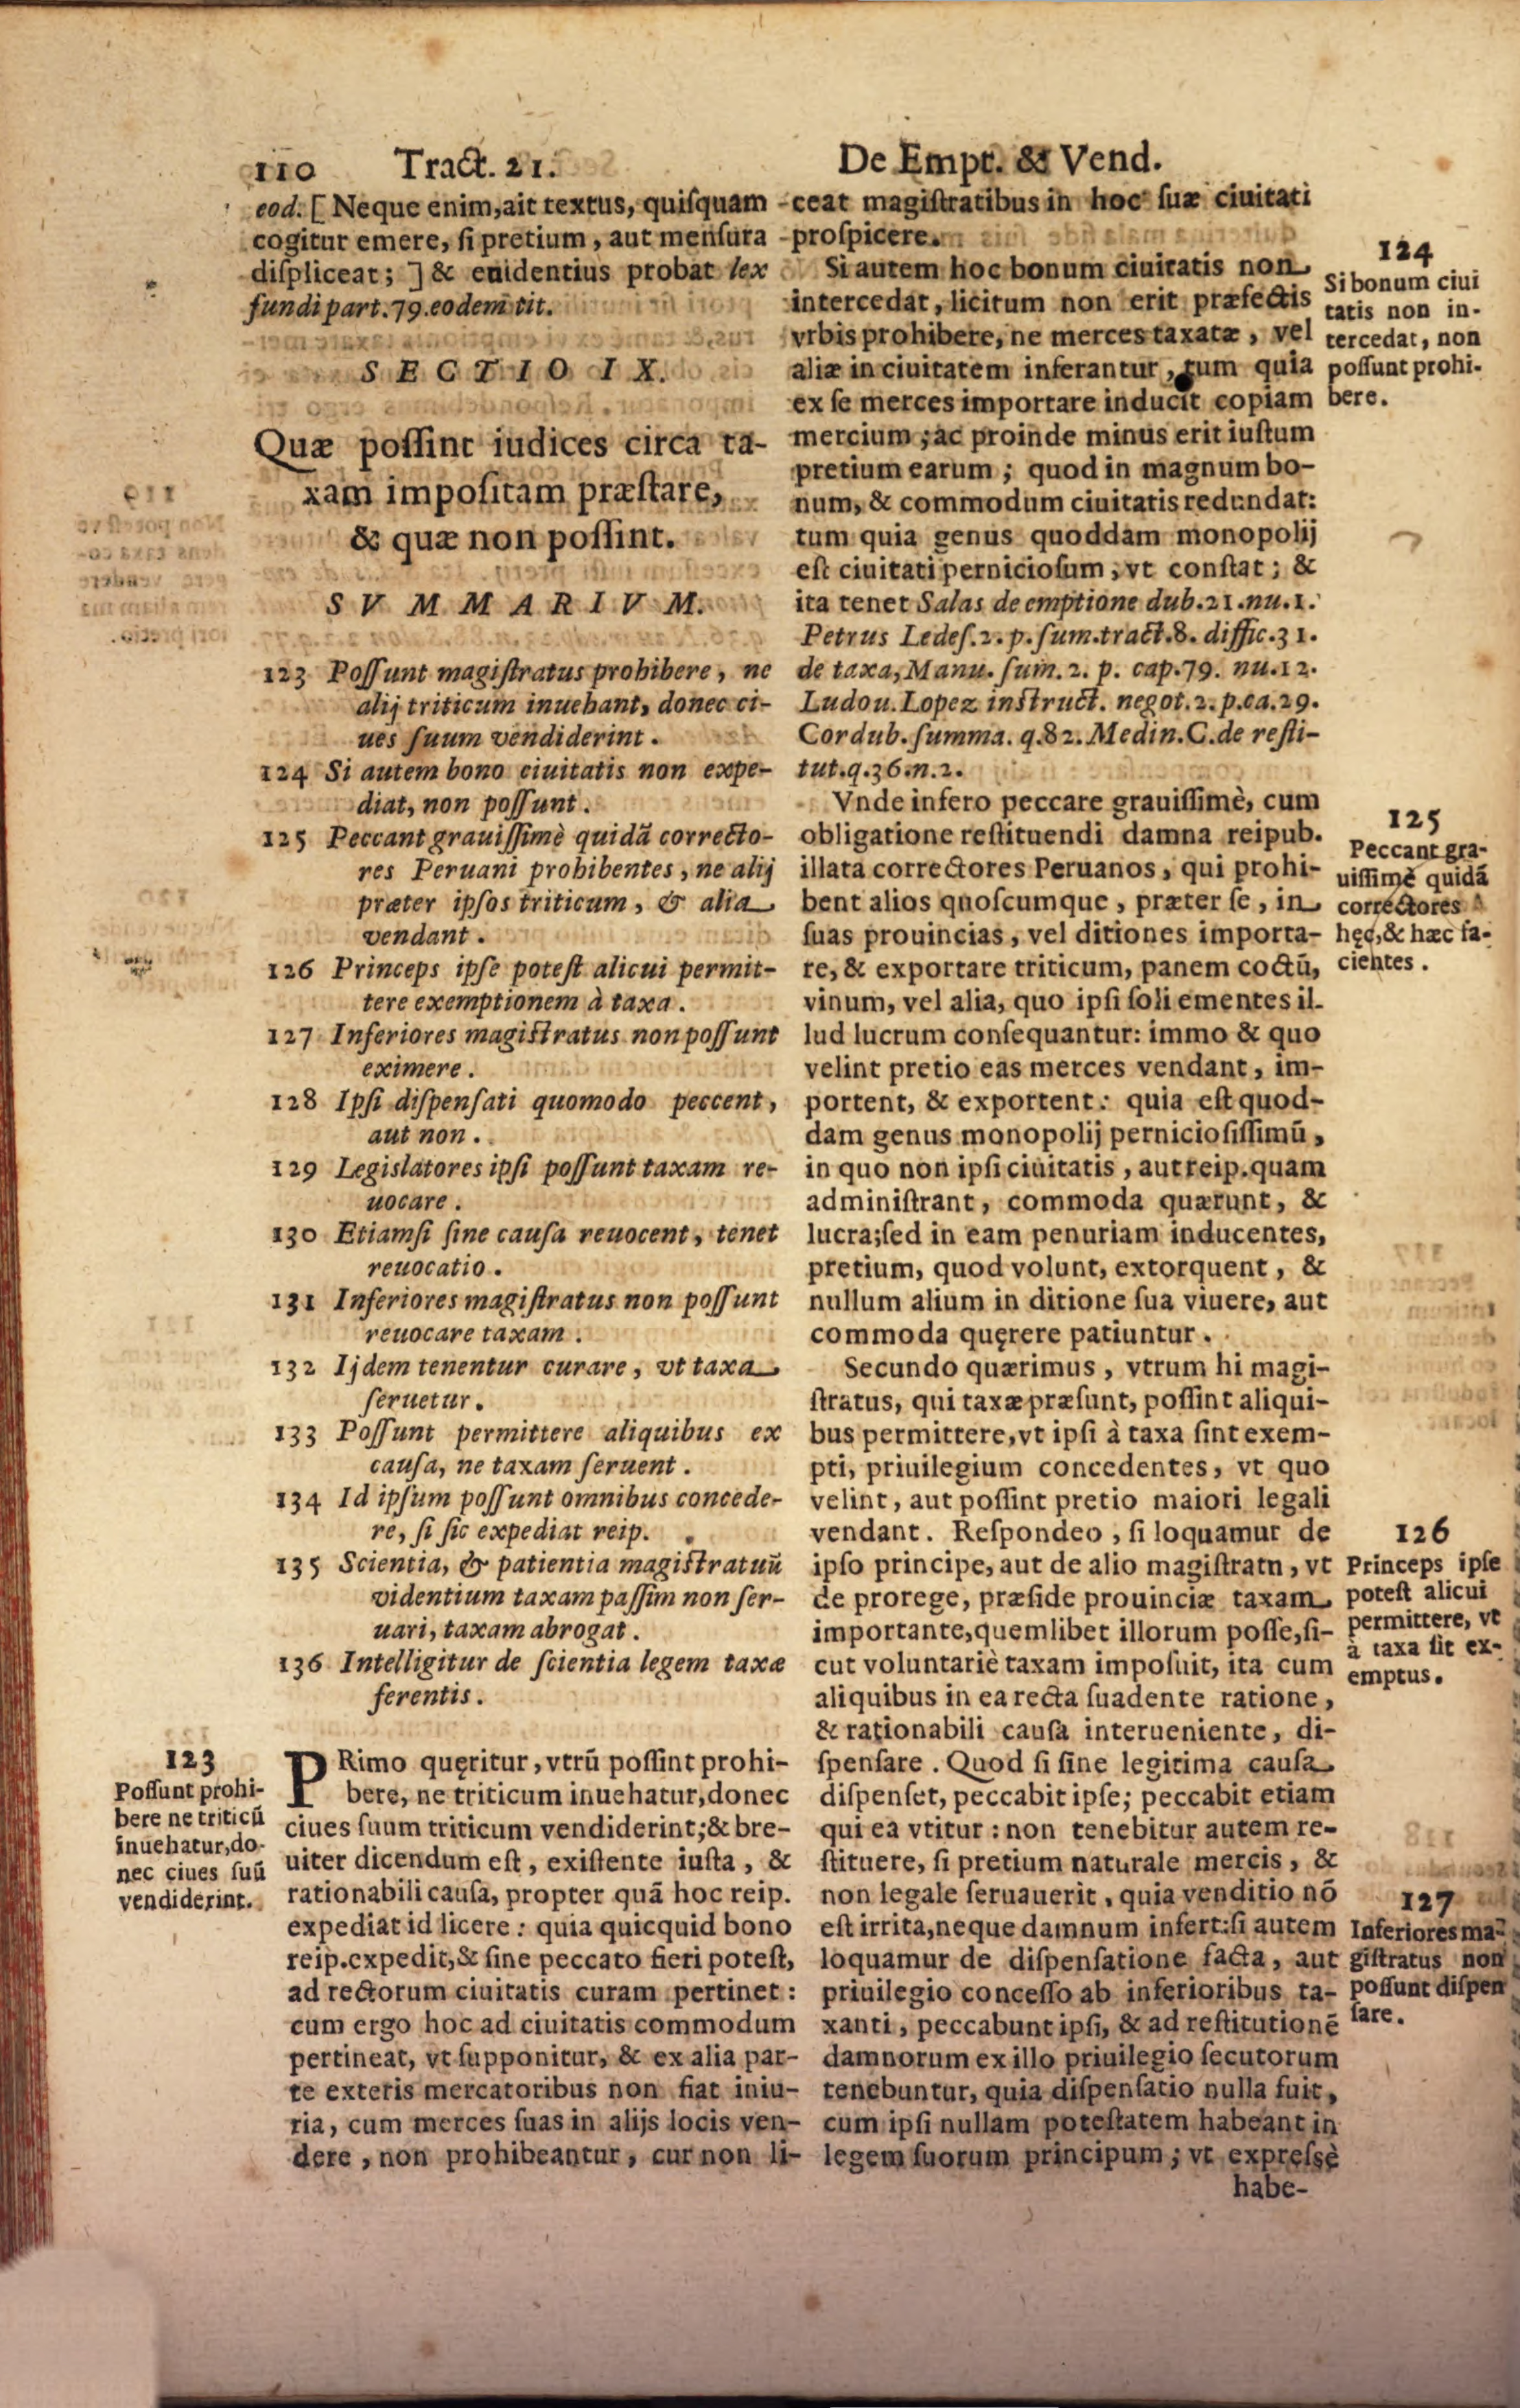 110 Tract. 21. De Empt. & Vend.
eod. [Neque enim, ait textus, quiſquam
cogitur emere, ſi pretium, aut menſura
diſpliceat; ] & euidentius probat lex
fundi part. 79. eodem tit.
SECTIO IX.
Quæ poſſint iudices circa ta-
xam impoſitam præſtare,
& quæ non poſſint.
SVMMARIVM.
123 Poſſunt magiſtratus prohibere, ne
alij triticum inuehant, donec ci-
ues ſuum vendiderint.
124 Si autem bono ciuitatis non expe-
diat, non poſſunt.
125 Peccant grauiſſimè quidã correcto-
res Peruani prohibentes, ne alij
præter ipſos triticum, & alia
vendant.
126 Princeps ipſe poteſt alicui permit-
tere exemptionem à taxa.
127 Inferiores magiſtratus non poſſunt
eximere.
128 Ipſi diſpenſati quomodo peccent,
aut non.
129 Legislatores ipſi poſſunt taxam re-
uocare.
130 Etiamſi ſine cauſa reuocent, tenet
reuocatio.
131 Inferiores magiſtratus non poſſunt
reuocare taxam.
132 Ijdem tenentur curare, vt taxa
ſeruetur.
133 Poſſunt permittere aliquibus ex
cauſa, ne taxam ſeruent.
134 Id ipſum poſſunt omnibus concede-
re, ſi ſic expediat reip.
135 Scientia, & patientia magiſtratuũ
videntium taxam paſſim non ſer-
uari, taxam abrogat.
136 Intelligitur de ſcientia legem taxæ
ferentis.
123
Poſſunt prohi-
bere ne triticũ
inuehatur, do-
nec ciues ſuũ
vendiderint.
PRimo quęritur, vtrũ poſſint prohi-
bere, ne triticum inuehatur, donec
ciues ſuum triticum vendiderint; & bre-
uiter dicendum eſt, exiſtente iuſta, &
rationabili cauſa, propter quã hoc reip.
expediat id licere: quia quicquid bono
reip. expedit, & ſine peccato fieri poteſt,
ad rectorum ciuitatis curam pertinet:
cum ergo hoc ad ciuitatis commodum
pertineat, vt ſupponitur, & ex alia par-
te exteris mercatoribus non fiat iniu-
ria, cum merces ſuas in alijs locis ven-
dere, non prohibeantur, cur non li-
ceat magiſtratibus in hoc ſuæ ciuitati
proſpicere.
Si autem hoc bonum ciuitatis non
intercedat, licitum non erit præfectis
vrbis prohibere, ne merces taxatæ, vel
aliæ in ciuitatem inferantur, tum quia
ex ſe merces importare inducit copiam
mercium; ac proinde minus erit iuſtum
pretium earum; quod in magnum bo-
num, & commodum ciuitatis redundat:
tum quia genus quoddam monopolij
eſt ciuitati pernicioſum, vt conſtat; &
ita tenet Salas de emptione dub. 21. nu. 1.
Petrus Ledeſ. 2. p. ſum. tract. 8. diffic. 31.
de taxa, Manu. ſum. 2. p. cap. 79. nu. 12.
Ludou. Lopez inſtruct. negot. 2. p. ca. 29.
Cordub. ſumma. q. 82. Medin. C. de reſti-
tut. q. 36. n. 2.
124
Si bonum ciui
tatis non in-
tercedat, non
poſſunt prohi-
bere.
Vnde infero peccare grauiſſimè, cum
obligatione reſtituendi damna reipub.
illata correctores Peruanos, qui prohi-
bent alios quoſcumque, præter ſe, in
ſuas prouincias, vel ditiones importa-
re, & exportare triticum, panem coctũ,
vinum, vel alia, quo ipſi ſoli ementes il-
lud lucrum conſequantur: immo & quo
velint pretio eas merces vendant, im-
portent, & exportent: quia eſt quod-
dam genus monopolij pernicioſiſſimũ,
in quo non ipſi ciuitatis, aut reip. quam
adminiſtrant, commoda quærunt, &
lucra; ſed in eam penuriam inducentes,
pretium, quod volunt, extorquent, &
nullum alium in ditione ſua viuere, aut
commoda quęrere patiuntur.
125
Peccant gra-
uiſſimè quidã
correctores
hęc, & hæc fa-
cientes.
Secundo quærimus, vtrum hi magi-
ſtratus, qui taxæ præſunt, poſſint aliqui-
bus permittere, vt ipſi à taxa ſint exem-
pti, priuilegium concedentes, vt quo
velint, aut poſſint pretio maiori legali
vendant. Reſpondeo, ſi loquamur de
ipſo principe, aut de alio magiſtratn, vt
de prorege, præſide prouinciæ taxam
importante, quemlibet illorum poſſe, ſi-
cut voluntariè taxam impoſuit, ita cum
aliquibus in ea recta ſuadente ratione,
& rationabili cauſa interueniente, di-
ſpenſare. Quod ſi ſine legitima cauſa
diſpenſet, peccabit ipſe; peccabit etiam
qui ea vtitur: non tenebitur autem re-
ſtituere, ſi pretium naturale mercis, &
non legale ſeruauerit, quia venditio nõ
eſt irrita, neque damnum infert: ſi autem
loquamur de diſpenſatione facta, aut
priuilegio conceſſo ab inferioribus ta-
xanti, peccabunt ipſi, & ad reſtitutionẽ
damnorum ex illo priuilegio ſecutorum
tenebuntur, quia diſpenſatio nulla fuit,
cum ipſi nullam poteſtatem habeant in
legem ſuorum principum; vt expreſsè
habe-
126
Princeps ipſe
poteſt alicui
permittere, vt
à taxa ſit ex-
emptus.
127
Inferiores ma-
giſtratus non
poſſunt diſpen
ſare.